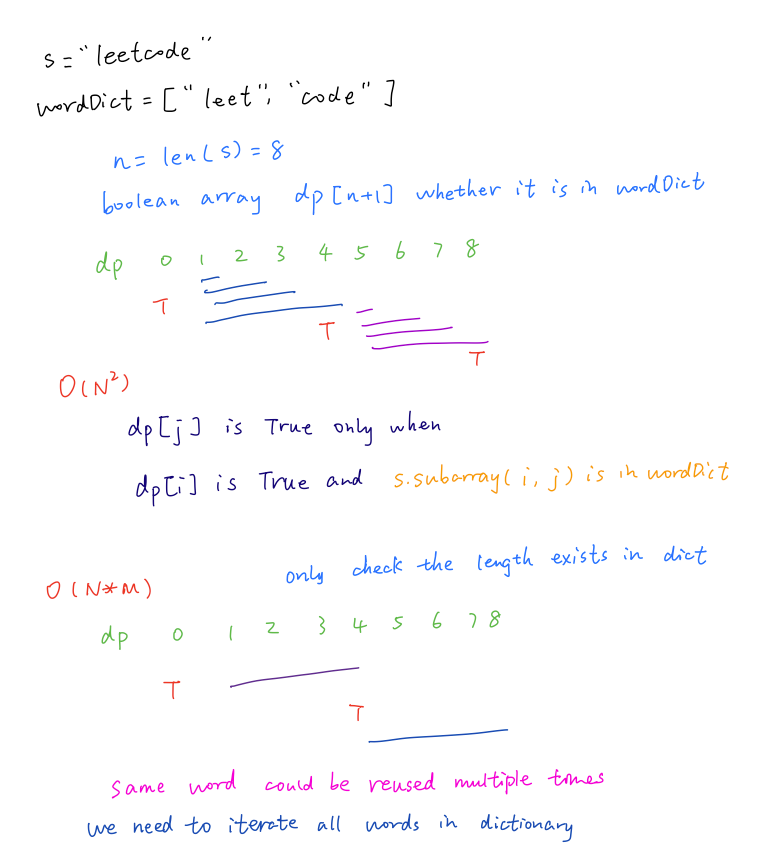 s = "leetcode"
wordDict = ["leet", "code"]
n = len(s) = 8
boolean array dp[n+1] whether it is in wordDict
dp 0 1 2 3 4 5 6 7 8
T
T
T
O(N²)
dp[j] is True only when
dp[i] is True and s.subarray(i, j) is in wordDict
only check the length exists in dict
O(N*M)
dp 0 1 2 3 4 5 6 7 8
T
T
same word could be reused multiple times
we need to iterate all words in dictionary